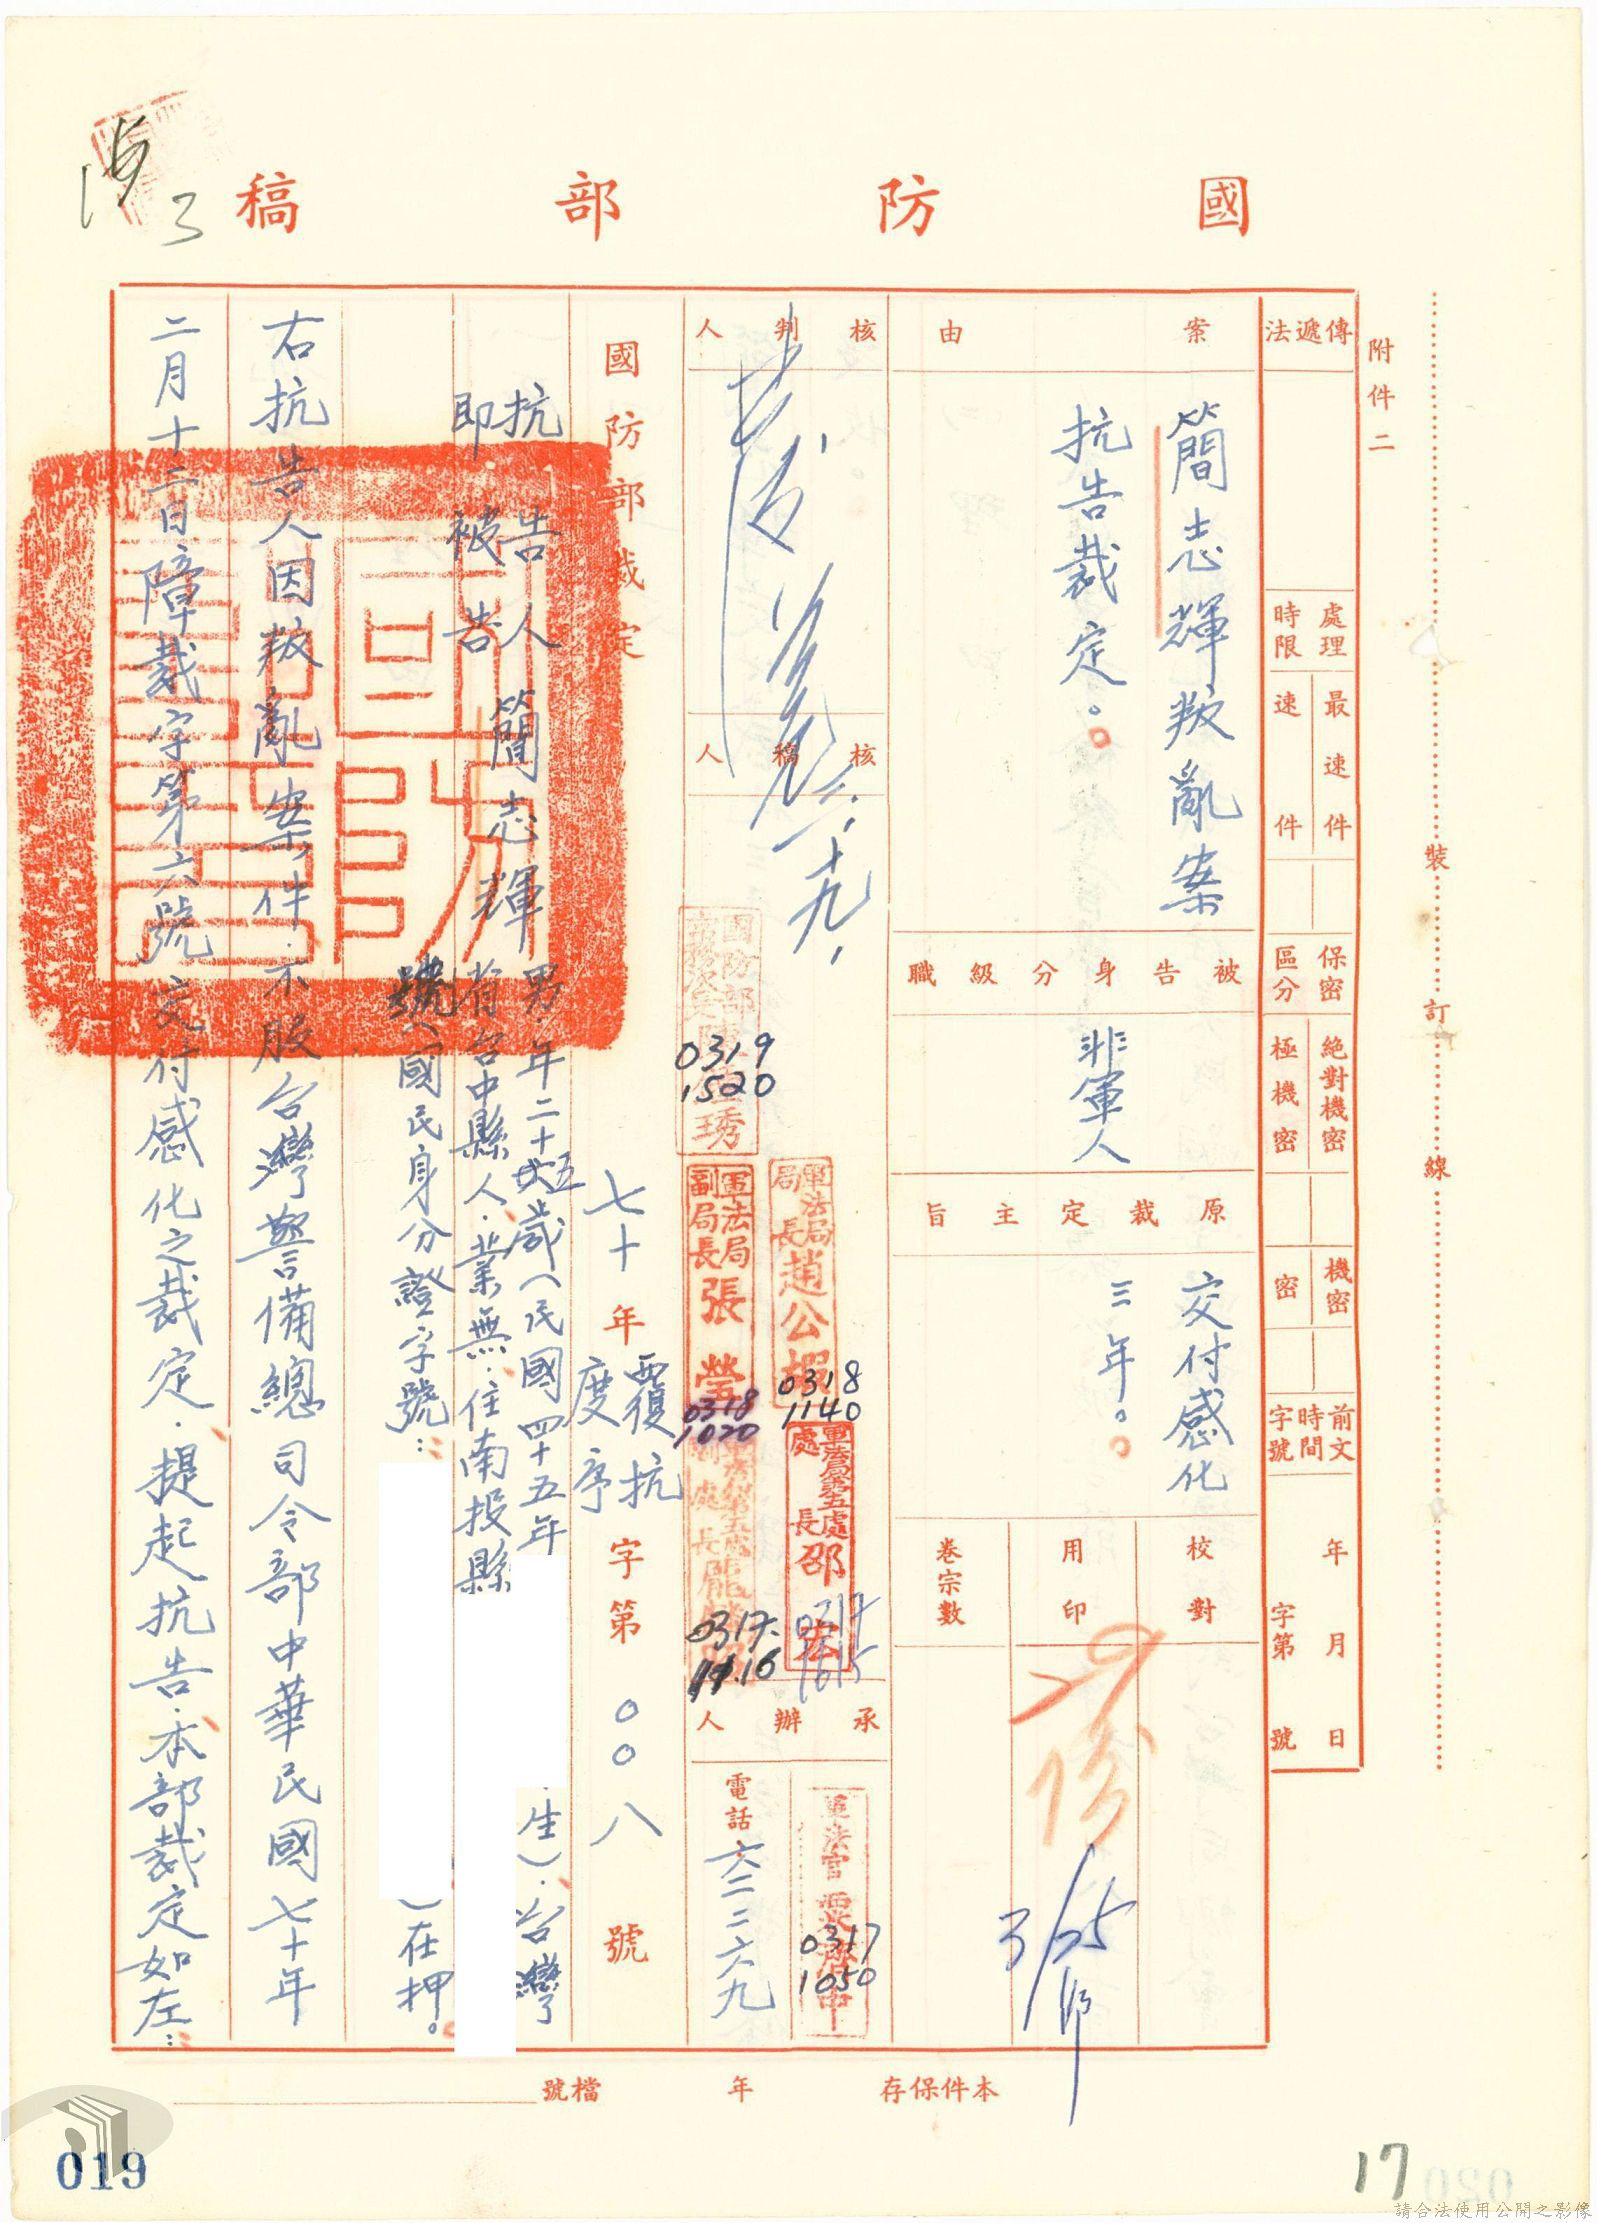 國防部稿
附件二
裝訂線
傳遞法
處理時限
最速件
速件
保密區分
絕對機密
極機密
機密
密
前文時間字號
年月日
字第號
案由
簡志輝叛亂案
抗告裁定。
被告身分級職
非軍人
原裁定主旨
交付感化
三年。
校對
用印
卷宗數
核判人
三、十九、
核稿人
0319
1520
軍法局局長趙公嘏
0318
1140
軍法局副局長張瑩
0318
1020
軍法局第五處處長邵
0317
1615
0317
承辦人
軍法官
0317
1050
電話 六二二六九
國防部裁定
七十年度覆抗序字第〇〇八號
抗告人
即被告
簡志輝
男.年二十五歲(民國四十五年
生).台灣
省台中縣人.業無.住南投縣
號(國民身分證字號:
)在押。
右抗告人因叛亂案件.不服台灣警備總司令部中華民國七十年
二月十二日障裁字第六號交付感化之裁定.提起抗告.本部裁定如左:
本件保存 年 檔號
019
17
020
請合法使用公開之影像